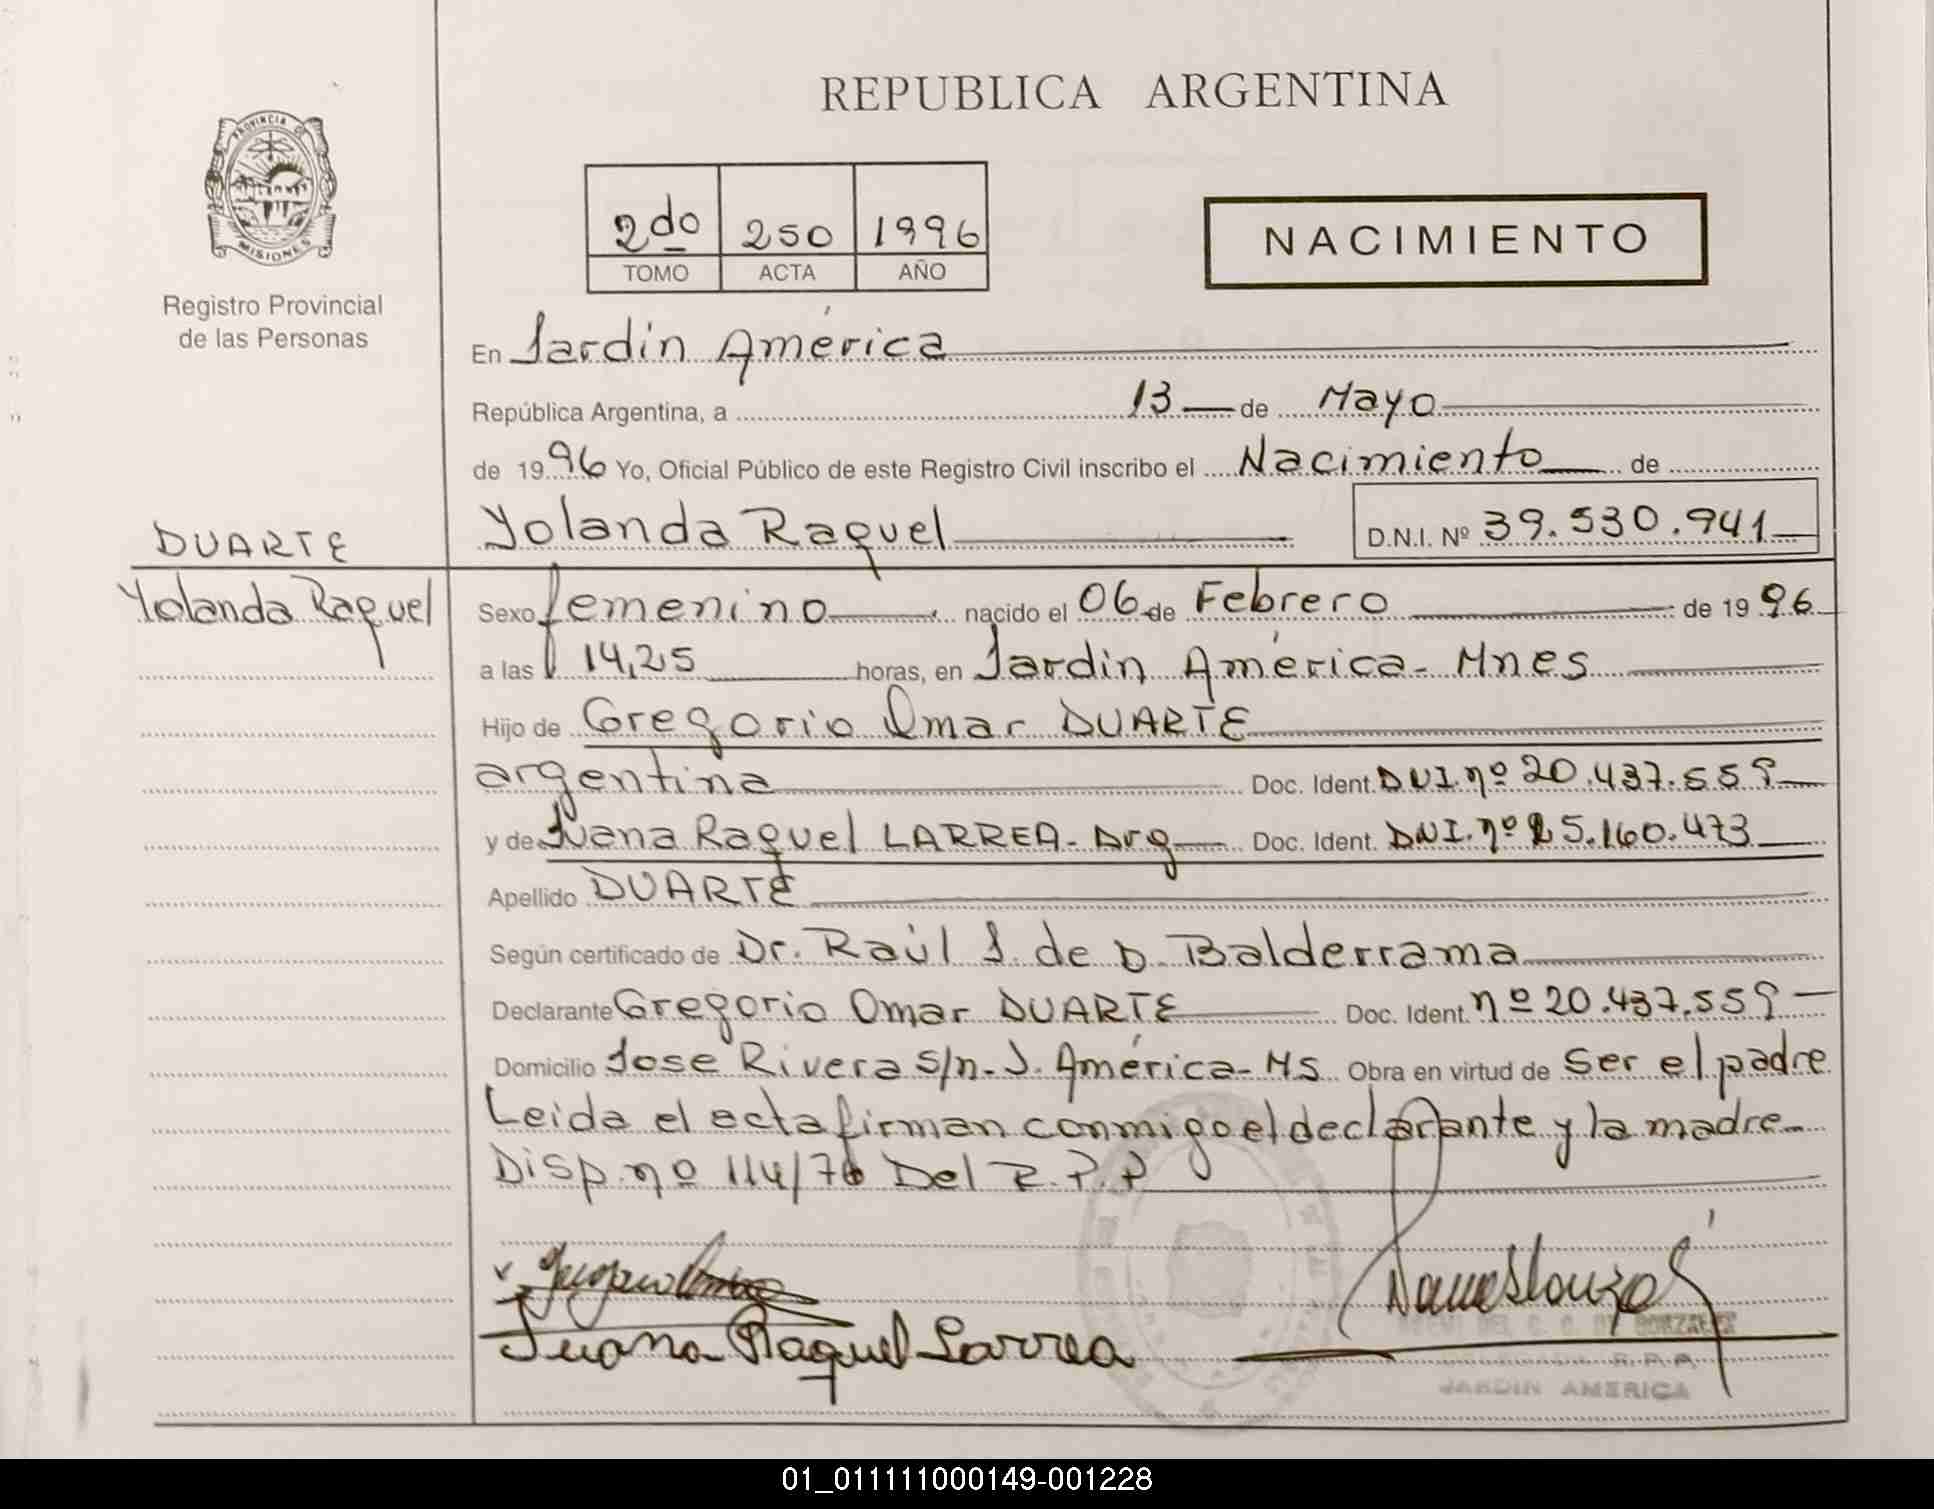 REPUBLICA ARGENTINA
PROVINCIA DE
MISIONES
Registro Provincial
de las Personas
2do 250 1996
TOMO ACTA AÑO
NACIMIENTO
En Jardín América
República Argentina, a 13 de Mayo
de 1996 Yo, Oficial Público de este Registro Civil inscribo el Nacimiento de
Yolanda Raquel D.N.I. Nº 39.530.941
DUARTE
Yolanda Raquel
Sexo femenino nacido el 06 de Febrero de 1996
a las 14,25 horas, en Jardin América - Mnes
Hijo de Gregorio Omar DUARTE
argentina Doc. Ident. DNI. nº 20.437.559
y de Juana Raquel LARREA - Arg Doc. Ident. DNI. nº 25.160.473
Apellido DUARTE
Según certificado de Dr. Raúl J. de D. Balderrama
Declarante Gregorio Omar DUARTE Doc. Ident. nº 20.437.559
Domicilio Jose Rivera s/n - J. América - Ms Obra en virtud de Ser el padre
Leida el acta firman conmigo el declarante y la madre
Disp. nº 114/76 Del R.P.P
Juana Raquel Larrea
JARDIN AMERICA
01_011111000149-001228